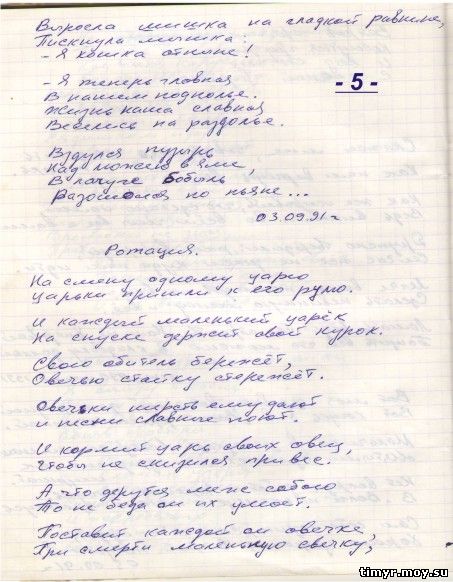 Выросла шишка на гладкой равнине,
Пискнула мышка:
- Я кошка отныне!
- 5 -
- Я теперь главная
В нашем подполье.
Жизнь наша славная
Веселись на раздолье.
Вздулся пузырь
Над лужею в яме,
В лачуге бобыль
Разошолся по пьяне...
03.09.91 г.
Ротация.
На смену одному царю
Царьки пришли к его рулю.
И каждый маленький царёк
На спуске держит свой курок.
Свого обитель бережёт,
Овечью стайку стережёт.
Овечьки шерсть ему дают
и песни славные поют.
И кормит царь своих овец,
Чтобы не снизился привес.
А что дерутся меж собою
То не беда он их умоет.
Поставит каждой он овечке,
При смерти маленькую свечку,
timyr-moy.su